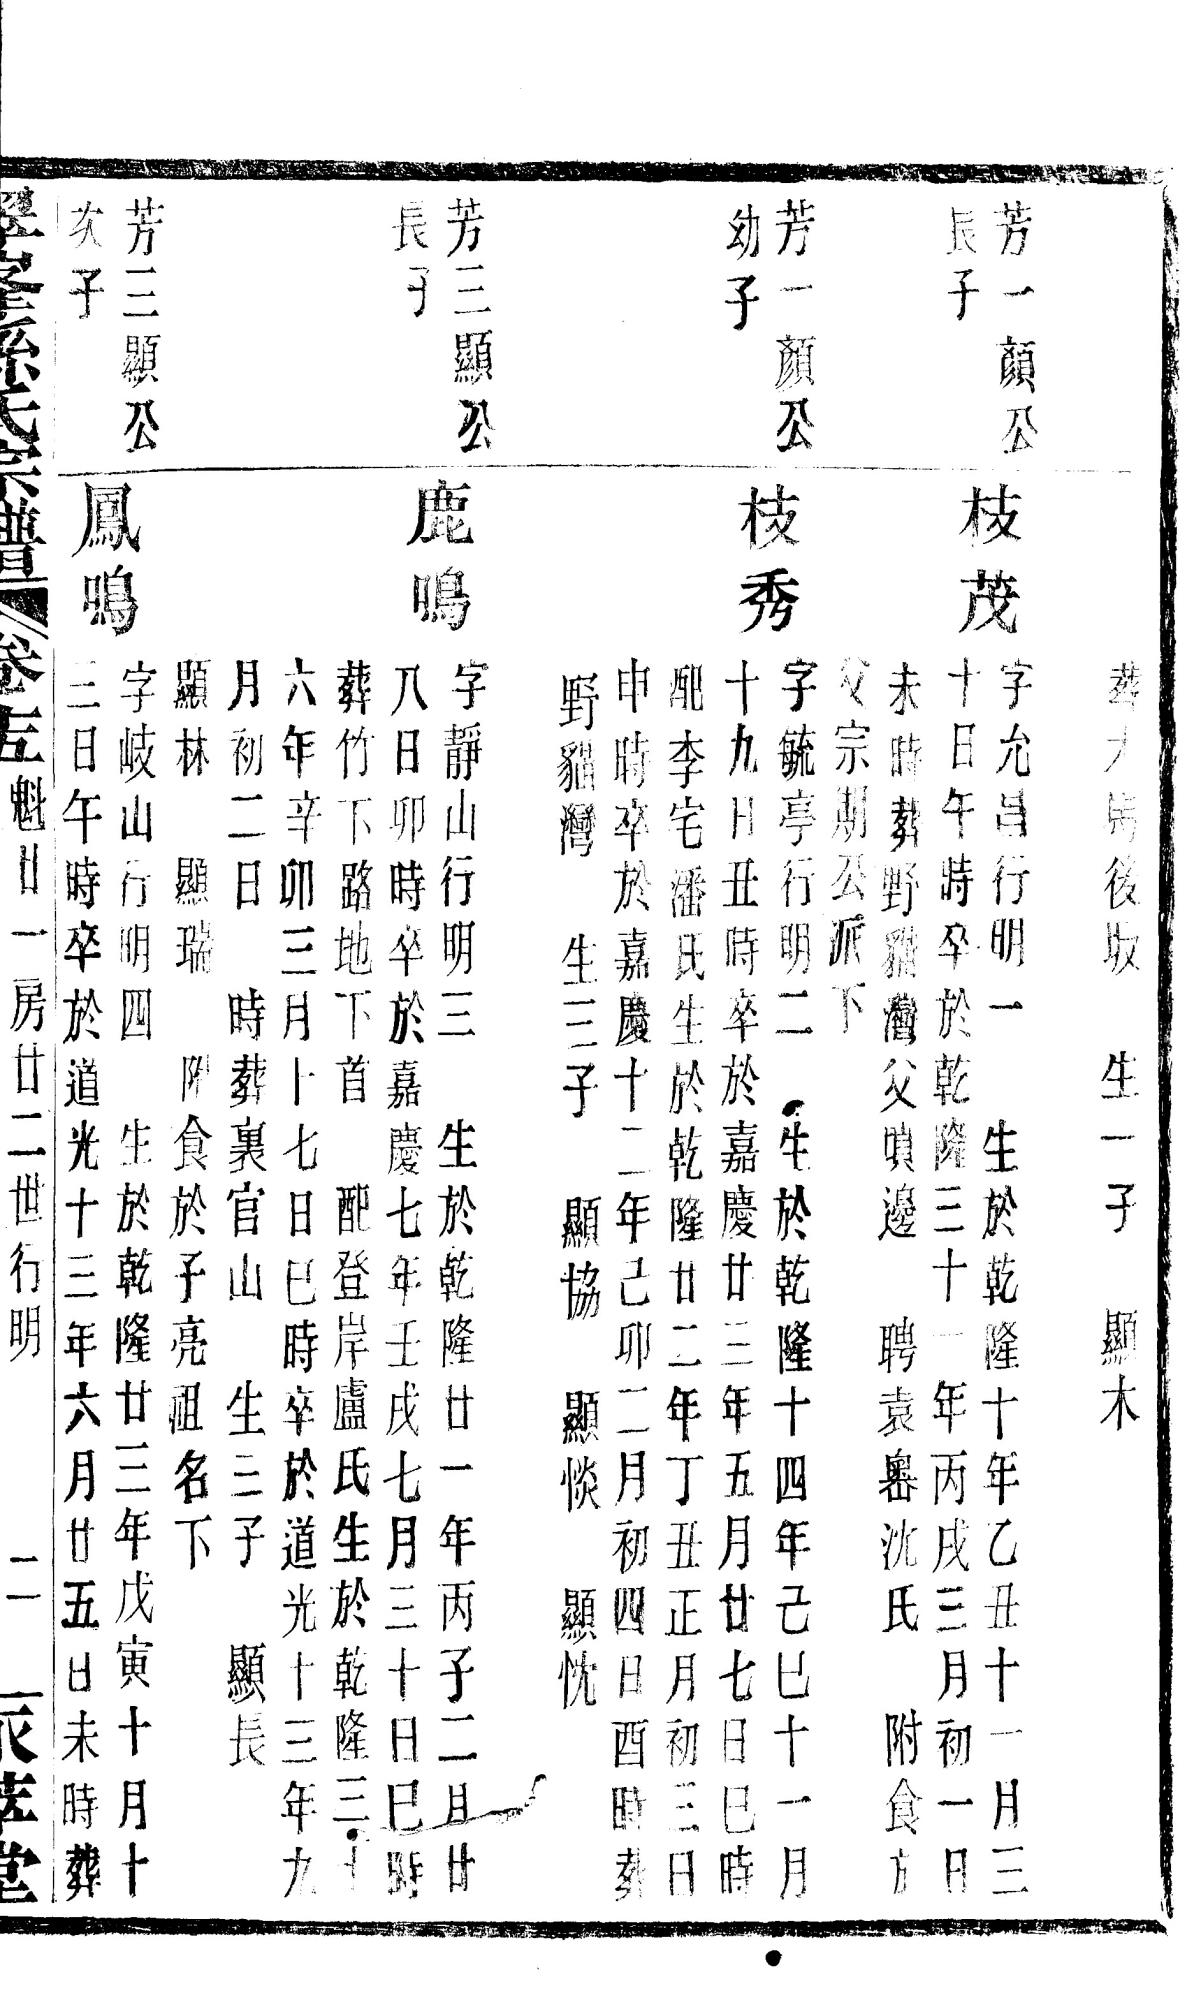 葬大塢後坂　生一子　顯木
芳一顏公
長子
枝茂
字允昌行明一　生於乾隆十年乙丑十一月三
十日午時卒於乾隆三十一年丙戌三月初一日
未時葬野貓灣父墳邊　聘袁嶴沈氏　附食方
父宗期公派下
芳一顏公
幼子
枝秀
字毓亭行明二　生於乾隆十四年己巳十一月
十九日丑時卒於嘉慶廿三年五月廿七日巳時
配李宅潘氏生於乾隆廿二年丁丑正月初三日
申時卒於嘉慶十二年己卯二月初四日酉時葬
野貓灣　生三子　顯協　顯惔　顯忱
芳三顯公
長子
鹿鳴
字靜山行明三　生於乾隆廿一年丙子二月廿
八日卯時卒於嘉慶七年壬戌七月三十日巳時
葬竹下路地下首　配登岸盧氏生於乾隆三十
六年辛卯三月十七日巳時卒於道光十三年九
月初二日　時葬裏官山　生三子　顯長
顯林　顯瑞　附食於子亮祖名下
芳三顯公
次子
鳳鳴
字岐山行明四　生於乾隆廿三年戊寅十月十
三日午時卒於道光十三年六月廿五日未時葬
孫氏宗譜　卷　魁廿一房廿二世行明　二　萃堂